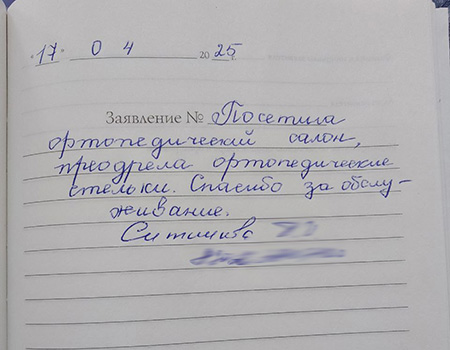 "17" 04 2025
Заявление № Посетила
ортопедический салон,
преодрела ортопедические
стельки. Спасибо за обслу-
живание.
Ситникова